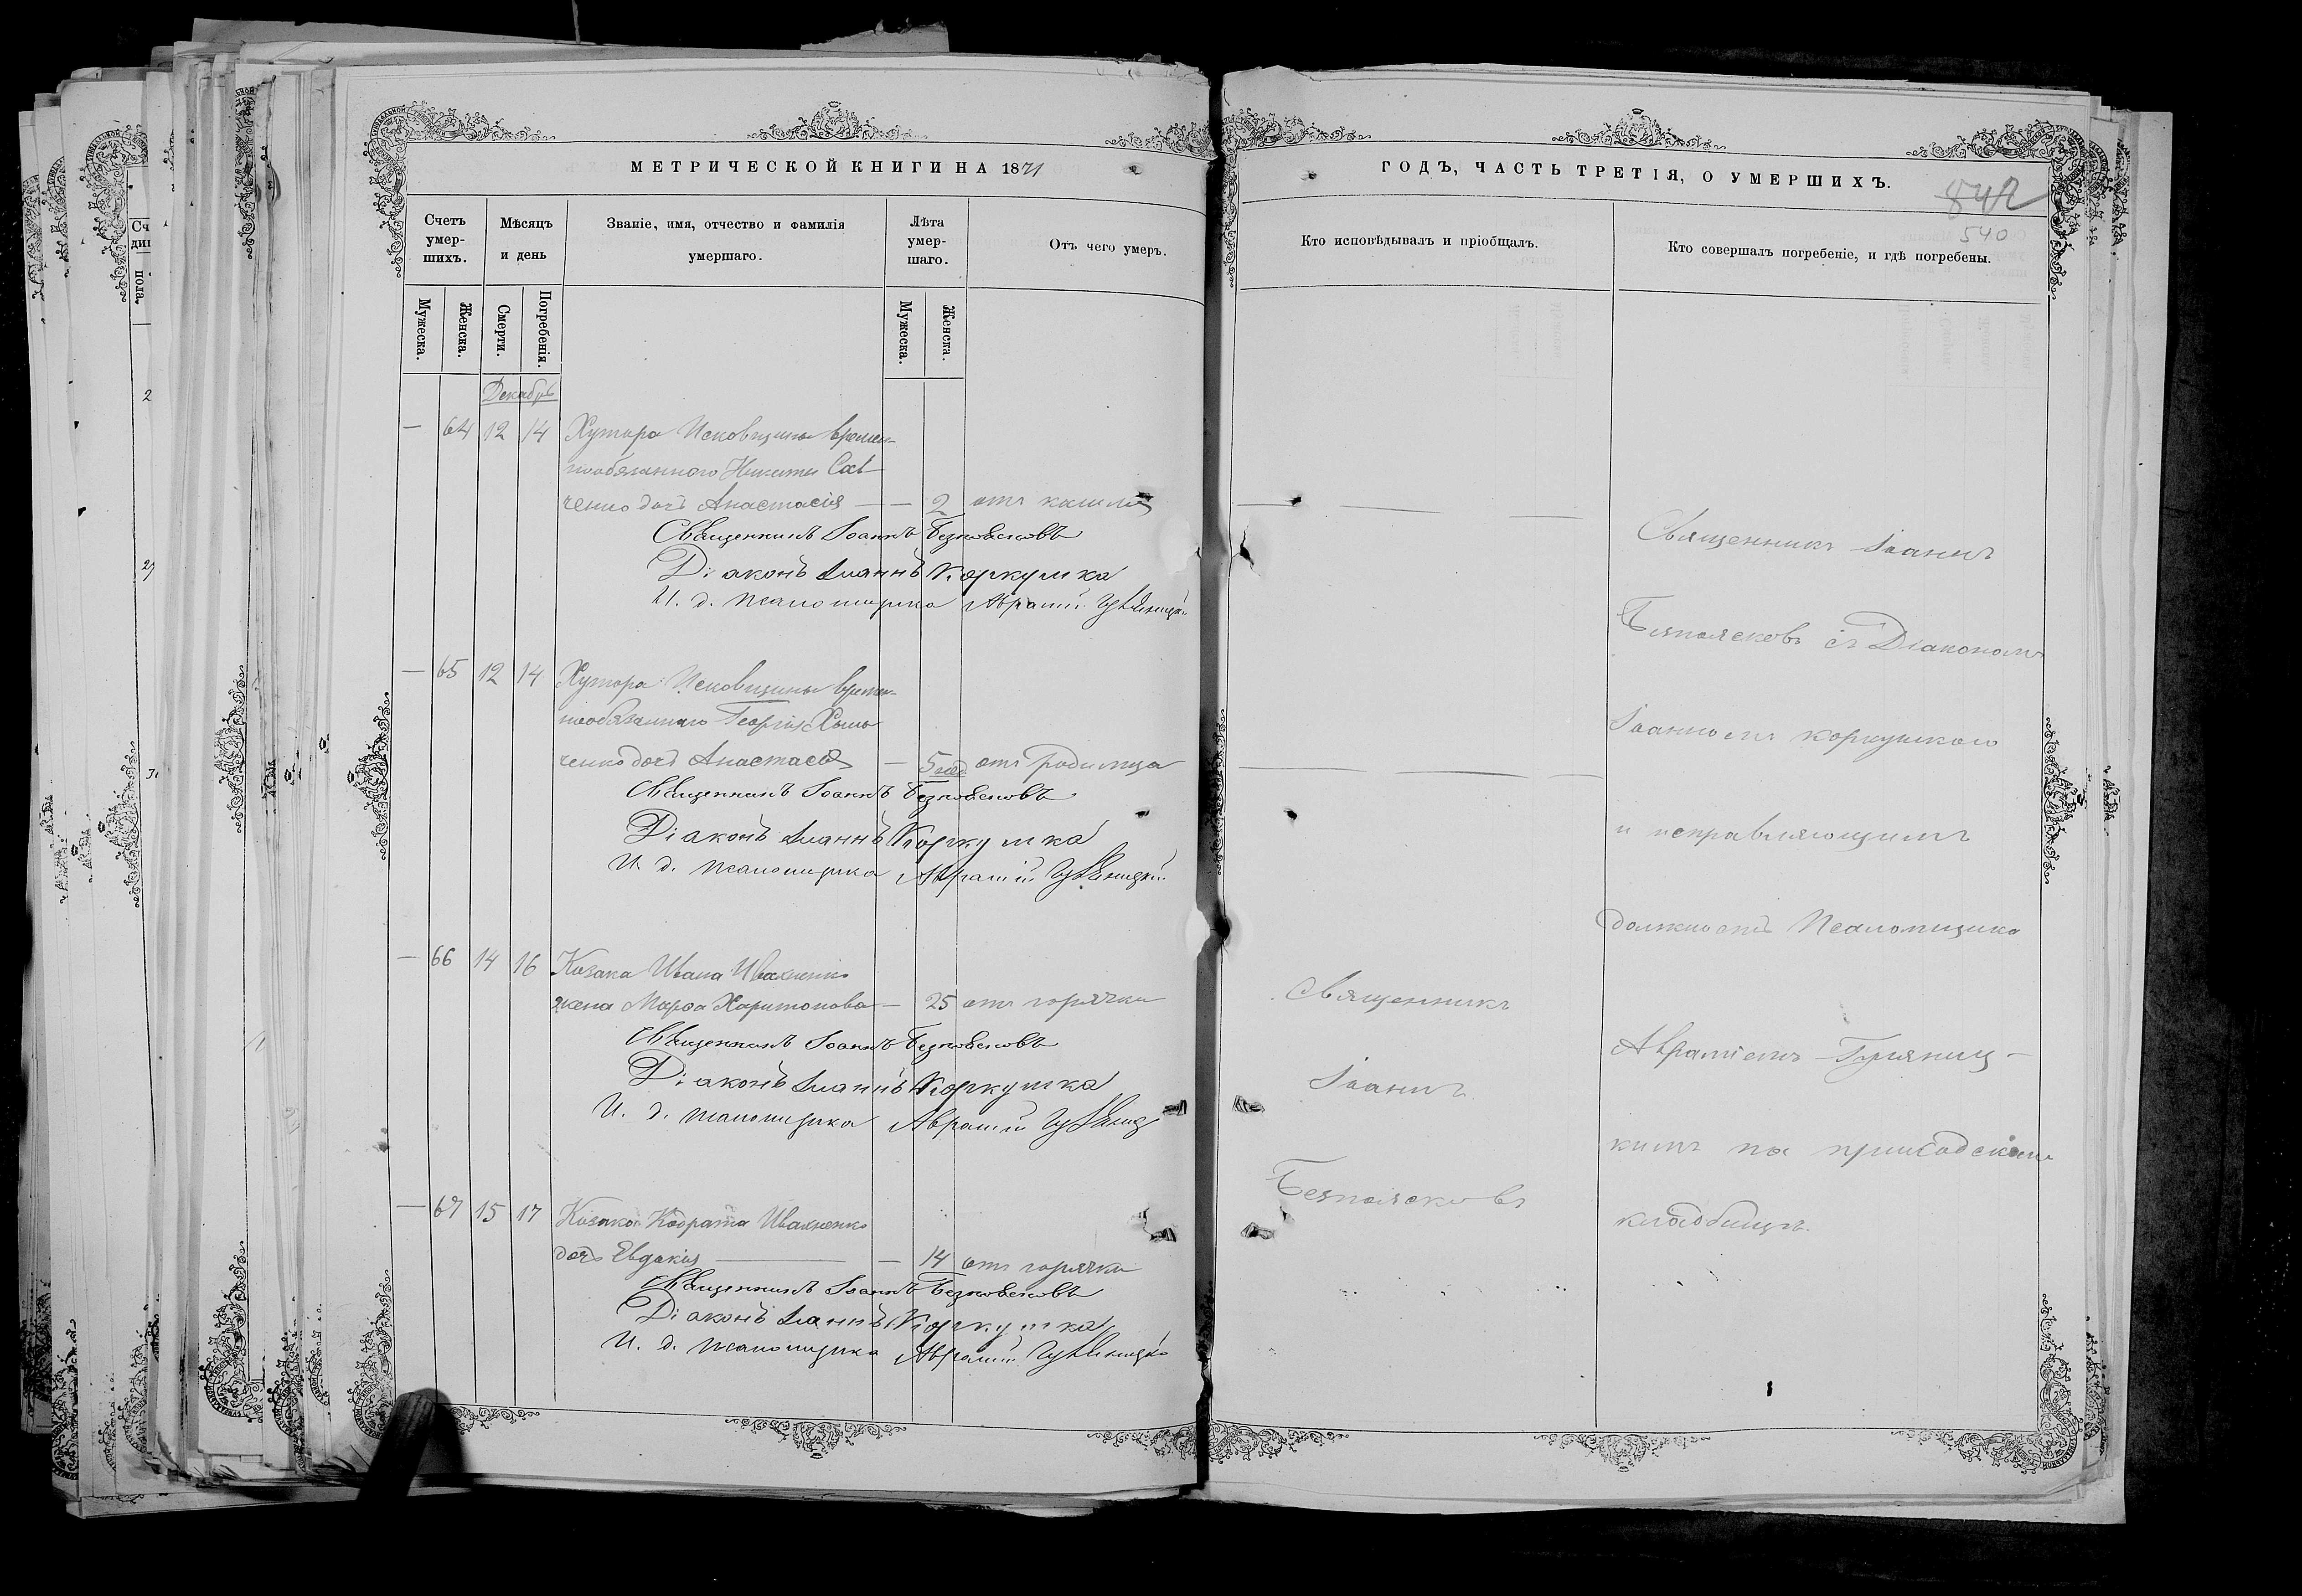 МЕТРИЧЕСКОЙ КНИГИ НА 1871
ГОДЪ, ЧАСТЬ ТРЕТІЯ, О УМЕРШИХЪ.
542
540
Счетъ умер-шихъ.
Мѣсяцъ и день
Званіе, имя, отчество и фамилія умершаго.
Лѣта умер-шаго.
Отъ чего умеръ.
Кто исповѣдывалъ и пріобщалъ.
Кто совершалъ погребеніе, и гдѣ погребены.
Мужеска.
Женска.
Смерти.
Погребенія.
Мужеска.
Женска.
Декабрь
— 64 12 14 Хутора Исковщины времен-
нообязанного Никиты Сав
ченко дочь Анастасія — — 2 отъ кашля
Священникъ Іоаннъ Безпоясковъ
Діаконъ Іоаннъ Коркушка
И. д. псаломщика Аврамій
— 65 12 14 Хутора Исковщины времен-
нообязанного Георгія
ченко дочь Анастасія — 5 отъ родимца
Священникъ Іоаннъ Безпоясковъ
Діаконъ Іоаннъ Коркушка
И. д. псаломщика Аврамій
— 66 14 16 Козака Ивана Ивахненко
жена Марѳа Харитонова — 25 отъ горячки
Священникъ Іоаннъ Безпоясковъ
Діаконъ Іоаннъ Коркушка
И. д. псаломщика Аврамій
— 67 15 17 Козака Кодрата Ивахненко
дочь Евдокія — — 14 отъ горячки
Священникъ Іоаннъ Безпоясковъ
Діаконъ Іоаннъ Коркушка
И. д. псаломщика Аврамій
Священникъ
Іоаннъ
Безпоясковъ
Священникъ Іоаннъ
Безпоясковъ съ Діакономъ
Іоанномъ Коркушкою
и исправляющимъ
должность Псаломщика
Авраміемъ
кимъ на приходскомъ
кладбищѣ.